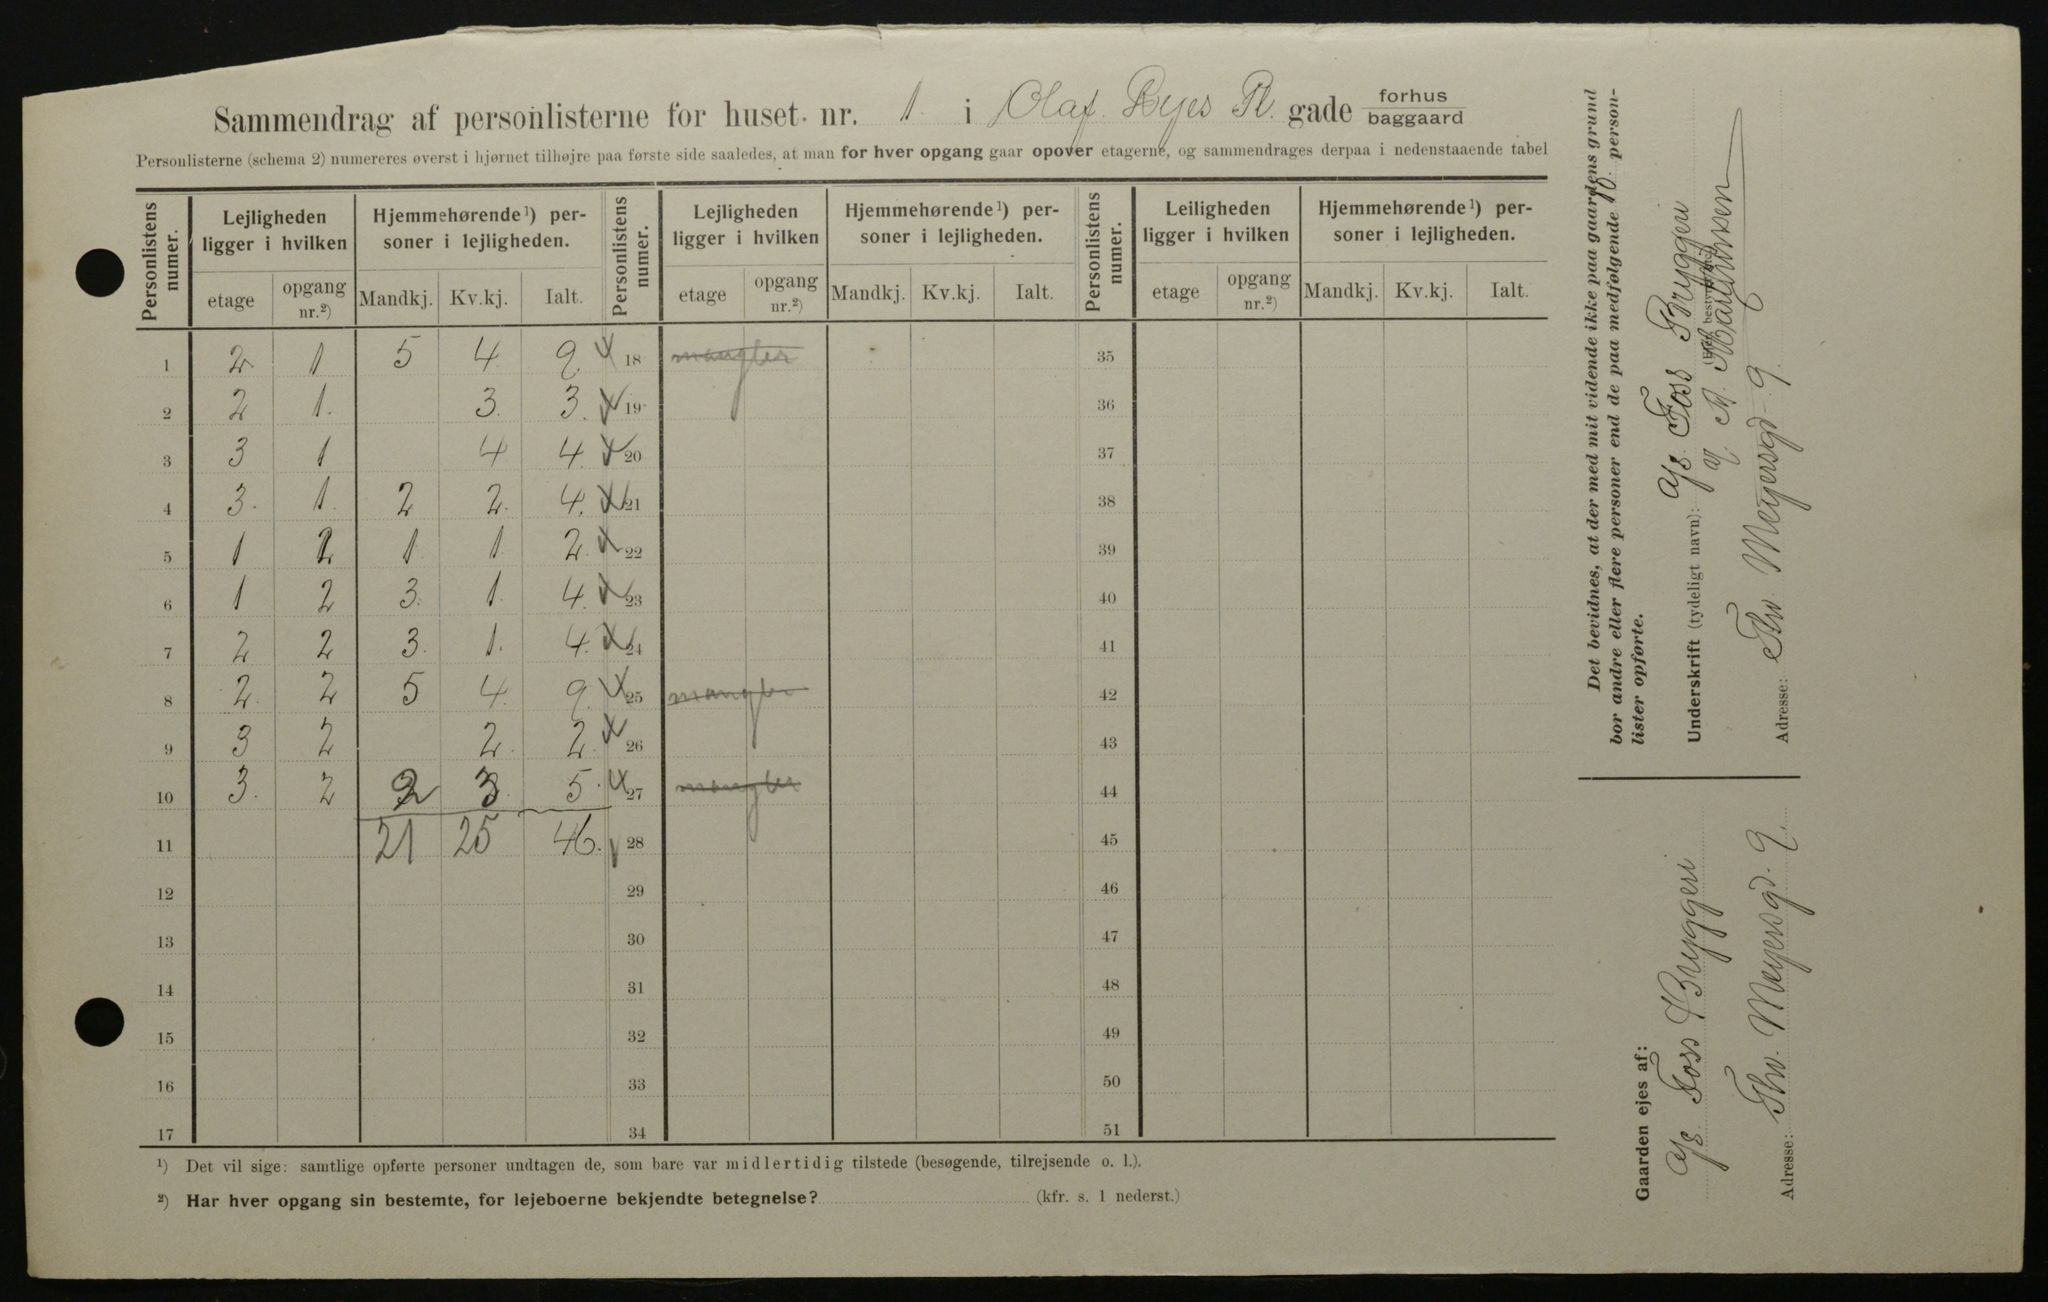 Sammendrag af personlisterne for huset nr. 1 i Olaf Ryes Pl. gade forhus baggaard
Personlisterne (schema 2) numereres øverst i hjørnet tilhøjre paa første side saaledes, at man for hver opgang gaar opover etagerne, og sammendrages derpaa i nedenstaaende tabel
Personlistens numer. Lejligheden ligger i hvilken Hjemmehørende¹) personer i lejligheden. Personlistens numer. Lejligheden ligger i hvilken Hjemmehørende¹) personer i lejligheden. Personlistens numer. Leiligheden ligger i hvilken Hjemmehørende¹) personer i lejligheden.
etage opgang nr.²) Mandkj. Kv.kj. Ialt. etage opgang nr.²) Mandkj. Kv.kj. Ialt. etage opgang nr.²) Mandkj. Kv.kj. Ialt.
1 2 1 5 4 9. 18 mangler 35
2 2 1. 3. 3. 19 36
3 3 1 4 4. 20 37
4 3. 1. 2 2. 4. 21 38
5 1 2 1. 1. 2. 22 39
6 1 2 3. 1. 4. 23 40
7 2 2 3. 1. 4. 24 41
8 2. 2 5 4. 9. 25 mangler 42
9 3 2 2. 2. 26 43
10 3. 2 2 3. 5. 27 mangler 44
11 21 25 46. 28 45
12 29 46
13 30 47
14 31 48
15 32 49
16 33 50
17 34 51
¹) Det vil sige: samtlige opførte personer undtagen de, som bare var midlertidig tilstede (besøgende, tilrejsende o. l.).
²) Har hver opgang sin bestemte, for lejeboerne bekjendte betegnelse? (kfr. s. 1 nederst.)
Det bevidnes, at der med mit vidende ikke paa gaardens grund
bor andre eller flere personer end de paa medfølgende 10 person-
lister opførte.
Underskrift (tydeligt navn): A/S. Foss Bryggeri
Adresse: Thv. Meyersgd 9.
Gaarden ejes af:
A/S. Foss Bryggeri
Adresse: Thv. Meyersgd. 9.